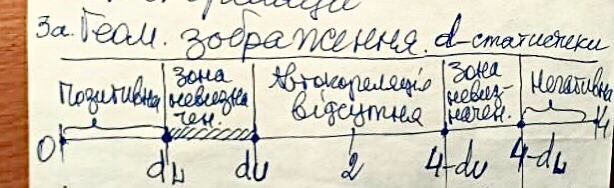 3а. Геом. зображення. d-статистики
Позитивна Зона невизна чен. Автокореляція відсутня Зона невиз- начен. Негативна
0 dL dU 2 4-dU 4-dL 4